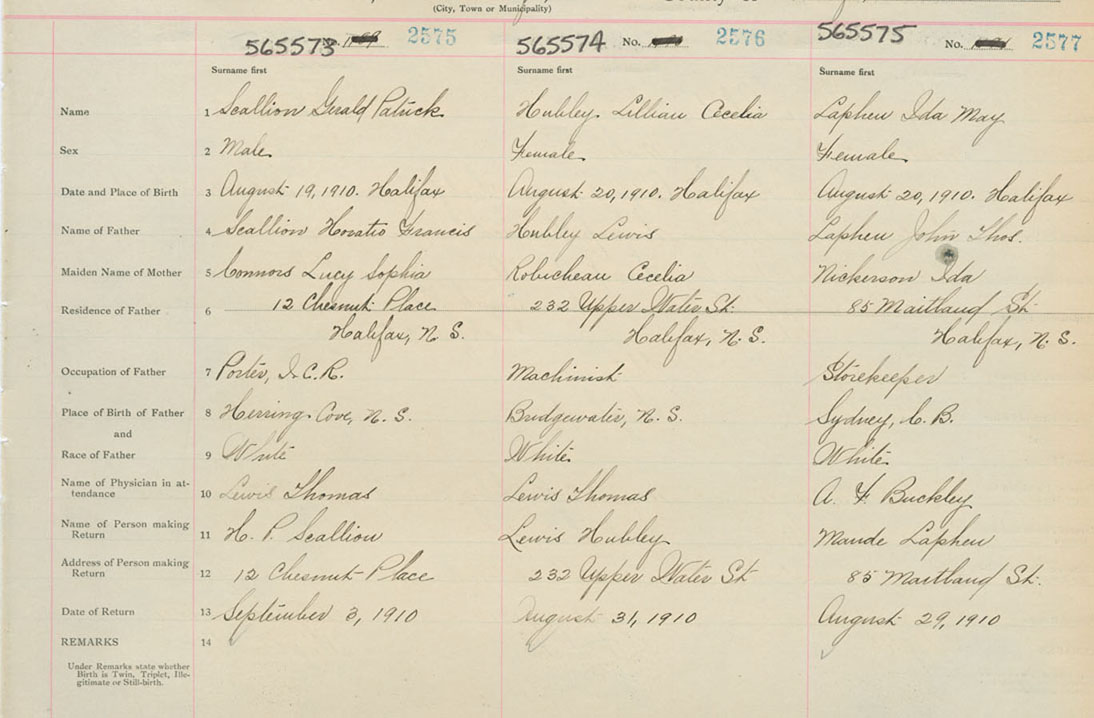 (City, Town or Municipality)
565573 2575 565574 No. 2576 565575 No. 2577
Surname first Surname first Surname first
Name 1 Scallion Gerald Patrick Hubley Lillian Cecelia Laphen Ida May
Sex 2 Male Female Female
Date and Place of Birth 3 August 19, 1910. Halifax August 20, 1910. Halifax August 20, 1910. Halifax
Name of Father 4 Scallion Horatio Francis Hubley Lewis Laphen John Thos.
Maiden Name of Mother 5 Connors Lucy Sophia Robicheau Cecelia Nickerson Ida
Residence of Father 6 12 Chesnut Place 232 Upper Water St. 85 Maitland St.
Halifax, N. S. Halifax, N. S. Halifax, N. S.
Occupation of Father 7 Porter, I. C. R. Machinist Storekeeper
Place of Birth of Father 8 Herring Cove, N. S. Bridgewater, N. S. Sydney, C. B.
and
Race of Father 9 White White White
Name of Physician in at-
tendance 10 Lewis Thomas Lewis Thomas A. F. Buckley
Name of Person making
Return 11 H. P. Scallion Lewis Hubley Maude Laphen
Address of Person making
Return 12 12 Chesnut Place 232 Upper Water St 85 Maitland St.
Date of Return 13 September 3, 1910 August 31, 1910 August 29, 1910
REMARKS 14
Under Remarks state whether
Birth is Twin, Triplet, Ille-
gitimate or Still-birth.